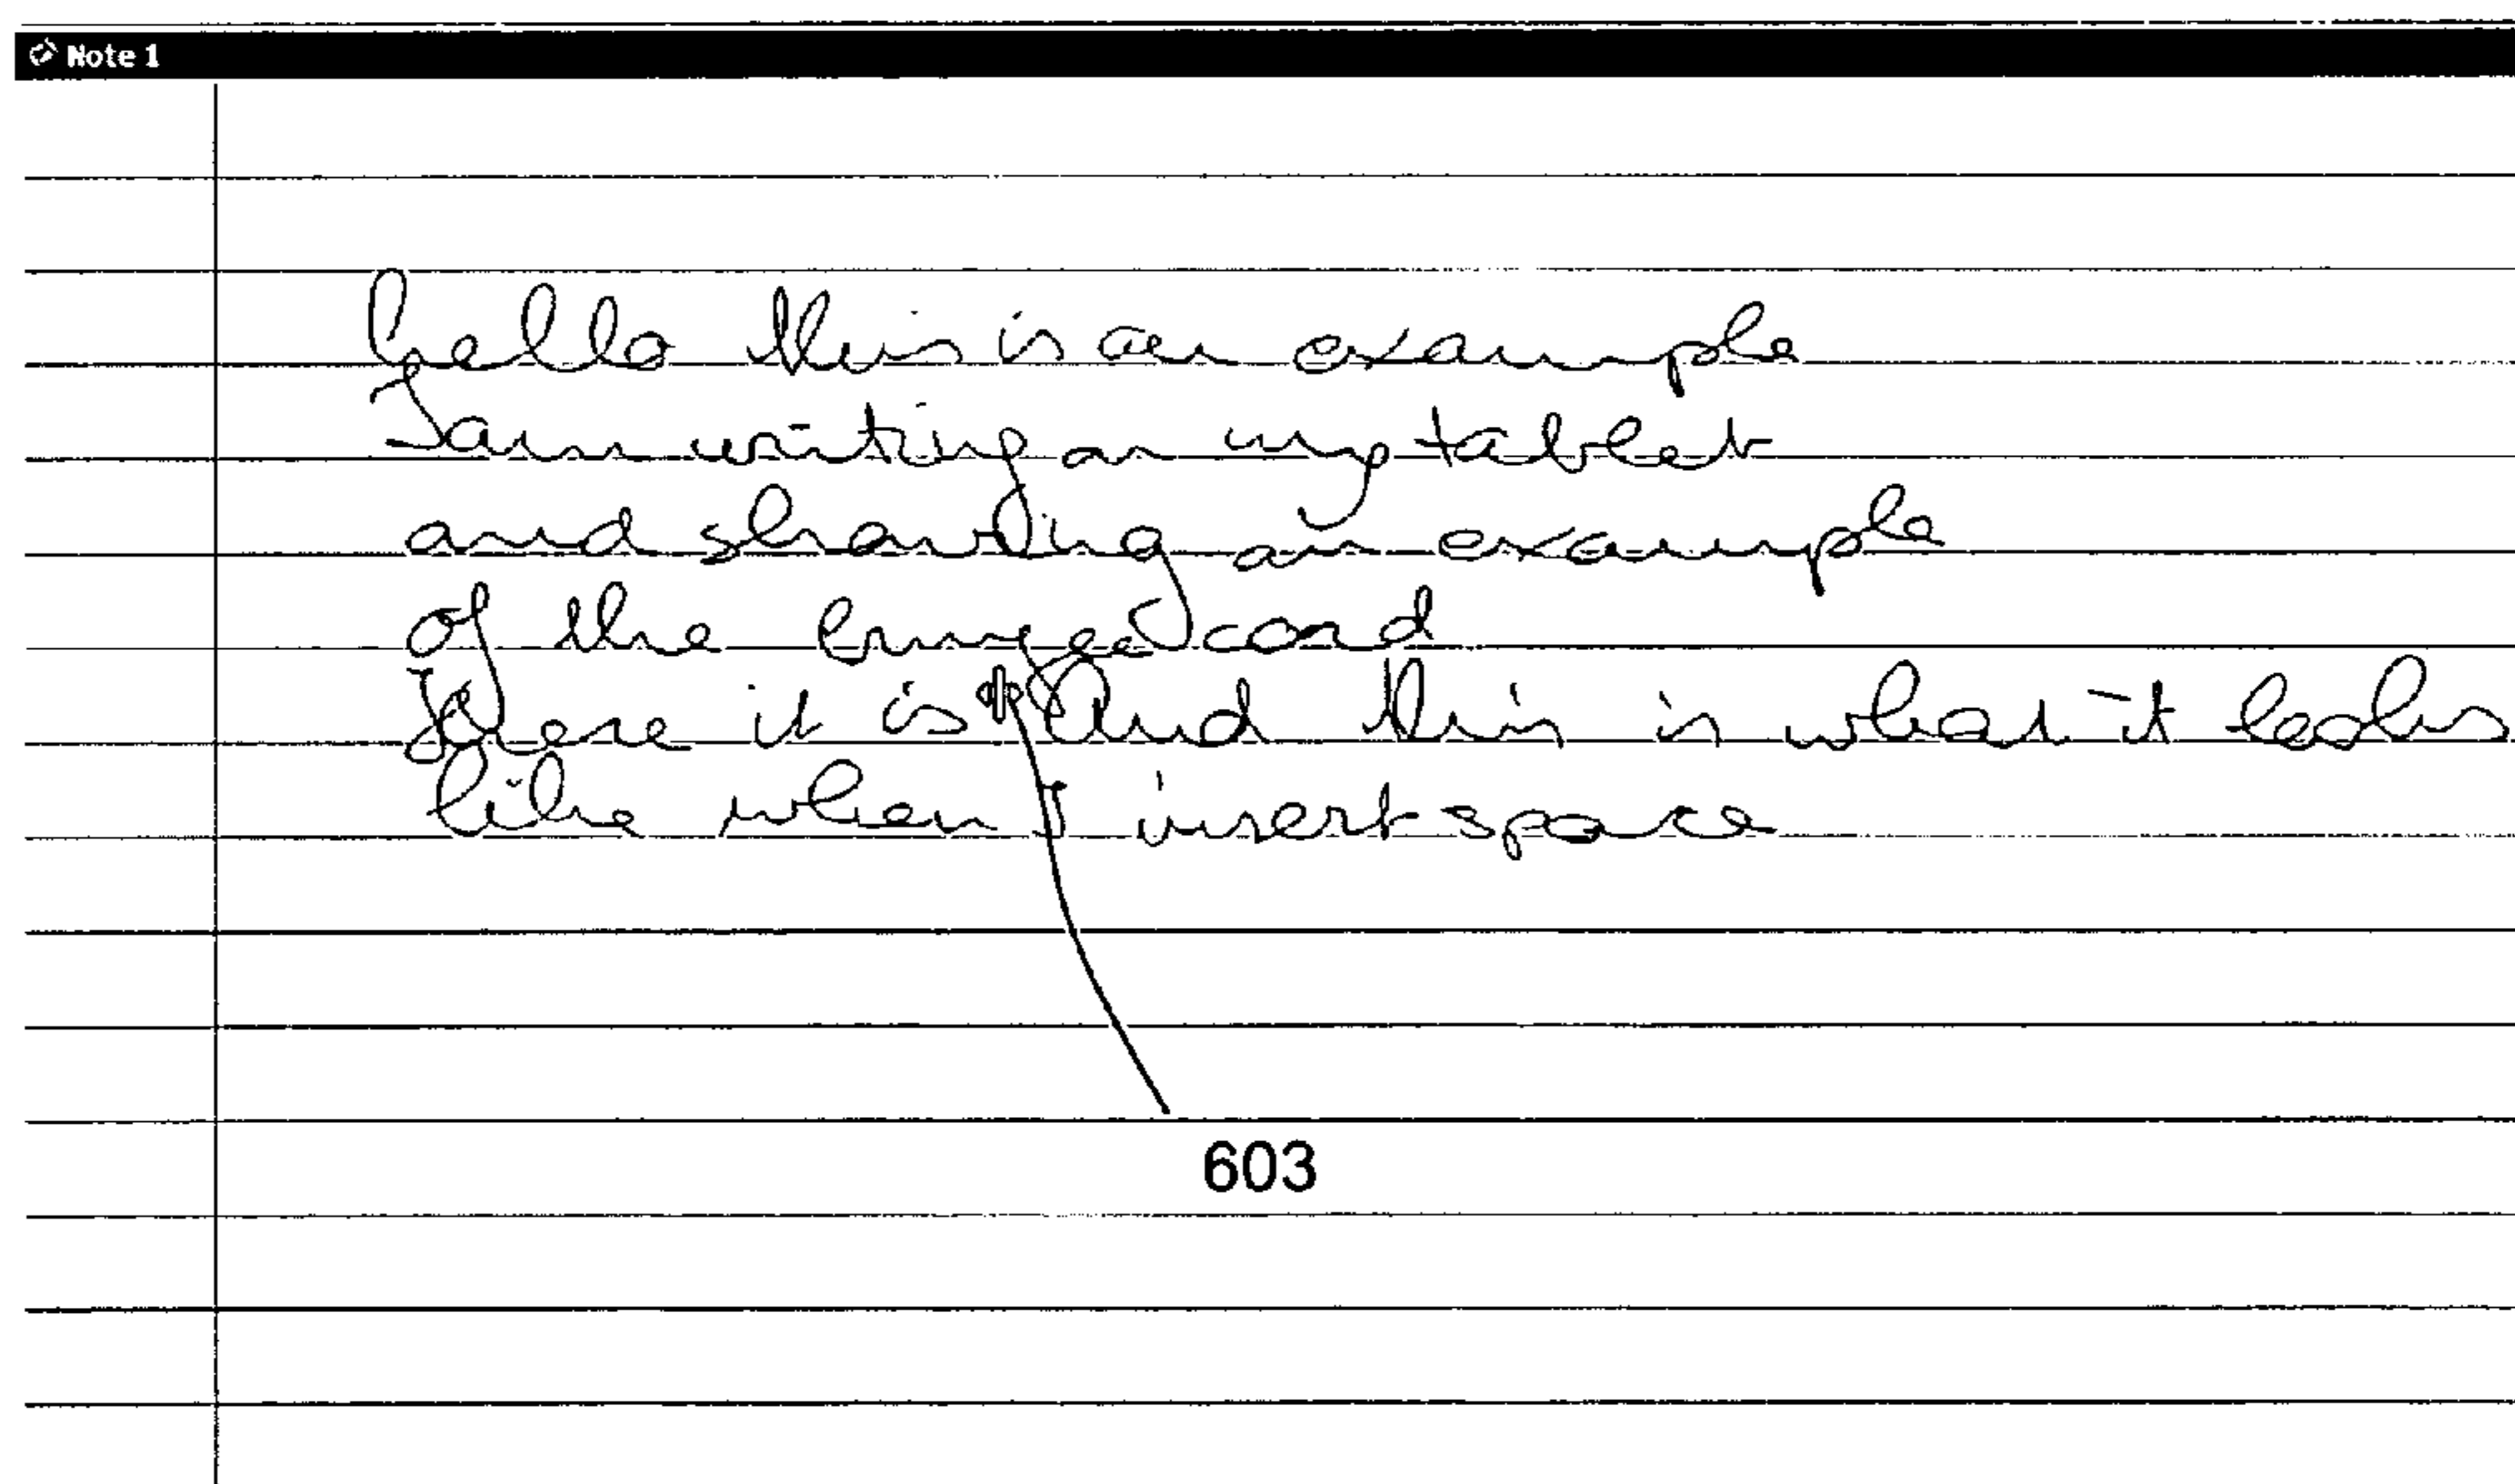 Note 1
hello this is an example
I am writing on my tablet
and sharing an example
of the card
Here it is And this is what it looks
like when I insert space
603